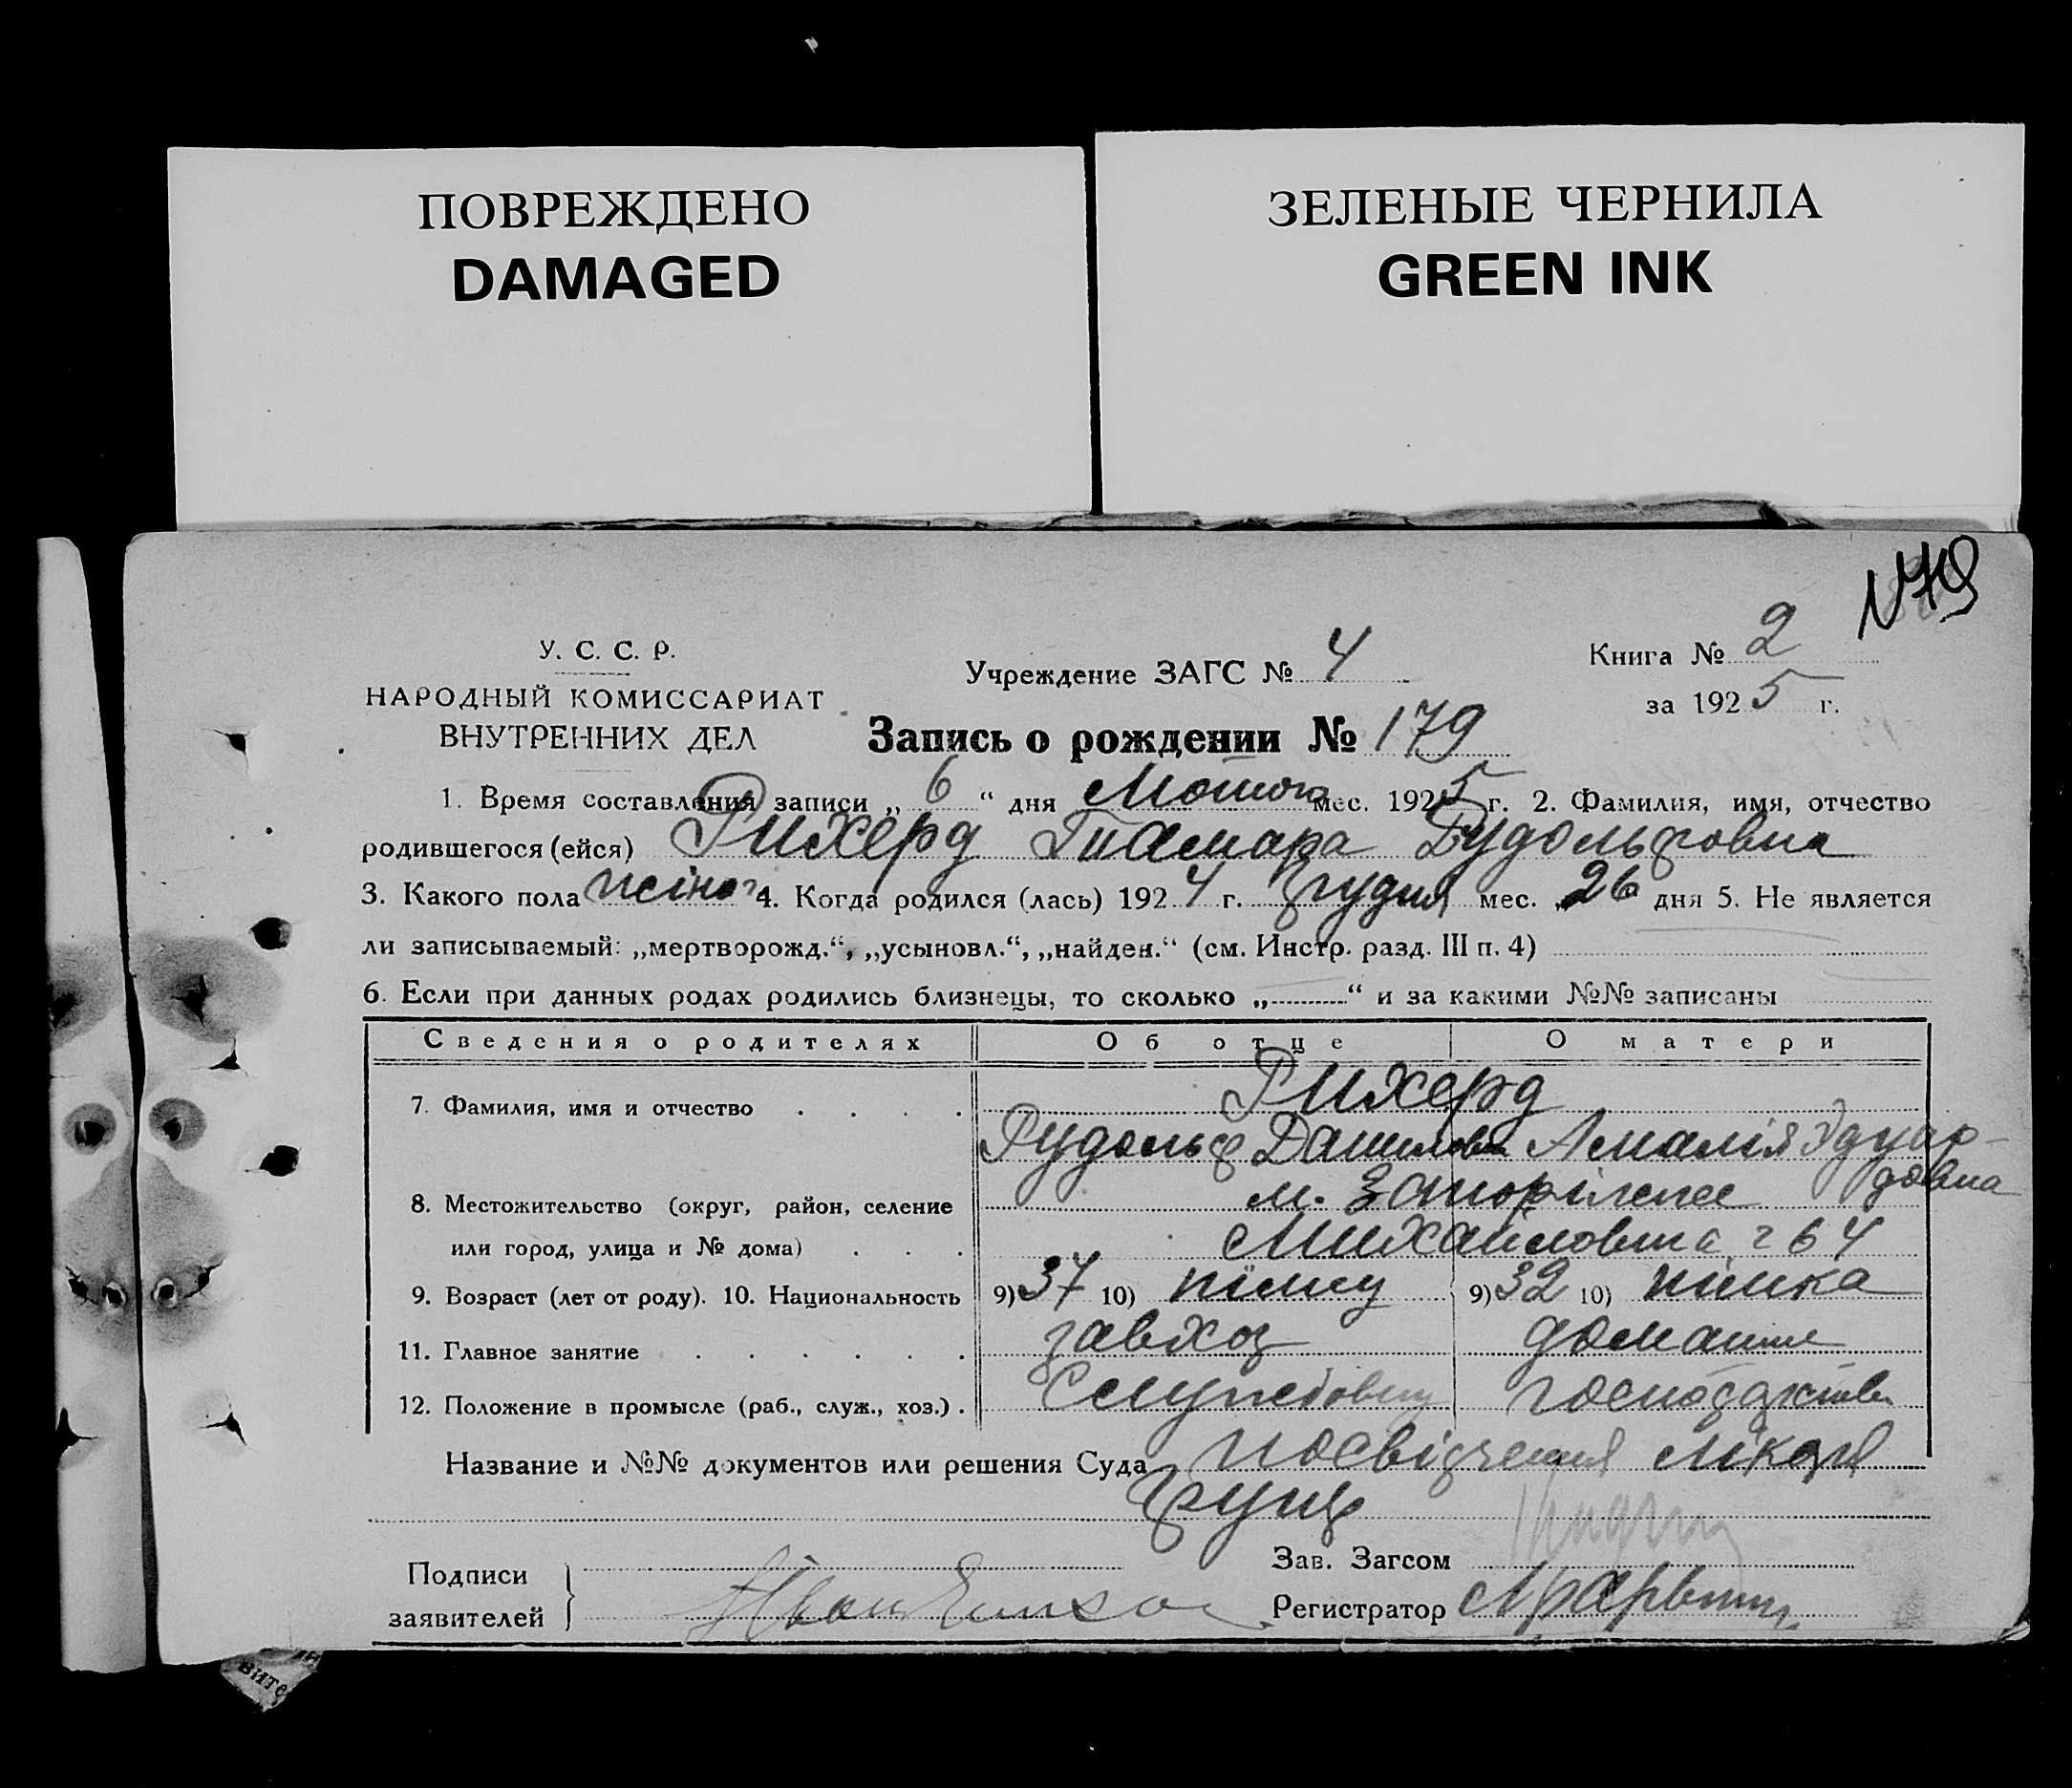 ПОВРЕЖДЕНО
DAMAGED
ЗЕЛЕНЫЕ ЧЕРНИЛА
GREEN INK
N 79
У. С. С. Р.
НАРОДНЫЙ КОМИССАРИАТ
ВНУТРЕННИХ ДЕЛ
Учреждение ЗАГС № 4
Книга № 2
за 1925 г.
Запись о рождении № 179
1. Время составления записи „ 6 “ дня Лютого мес. 1925 г. 2. Фамилия, имя, отчество
родившегося (ейся) Рихерд Тамара Рудольфовна
3. Какого пола жіноч 4. Когда родился (лась) 1924 г. грудня мес. „26 дня 5. Не является
ли записываемый: „мертворожд.“, „усыновл.“, „найден.“ (см. Инстр. разд. III п. 4)
6. Если при данных родах родились близнецы, то сколько „ “ и за какими №№ записаны
Сведения о родителях Об отце О матери
7. Фамилия, имя и отчество Рихерд
Рудольф Данилов Амалія Эдуар-
довна
8. Местожительство (округ, район, селение м. Запоріжже
или город, улица и № дома) Михайловська 64
9. Возраст (лет от роду). 10. Национальность 9) 37 10) німец 9) 32 10) німка
11. Главное занятие завхоз домашнє
12. Положение в промысле (раб., служ., хоз.) Службовец господарство
Название и №№ документов или решения Суда посвідчення лікаря
Подписи
заявителей
Зав. Загсом
Регистратор
вите